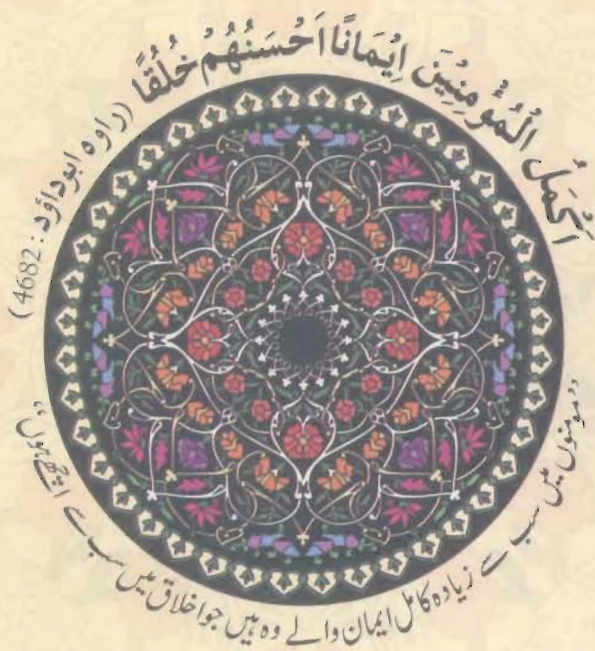 اَكْمَلُ الْمُؤْمِنِيْنَ اِيْمَانًا اَحْسَنُهُمْ خُلُقًا (راوه ابوداؤد: 4682)
”مومنوں میں سب سے زیادہ کامل ایمان والے وہ ہیں جو اخلاق میں سب سے اچھے ہوں“